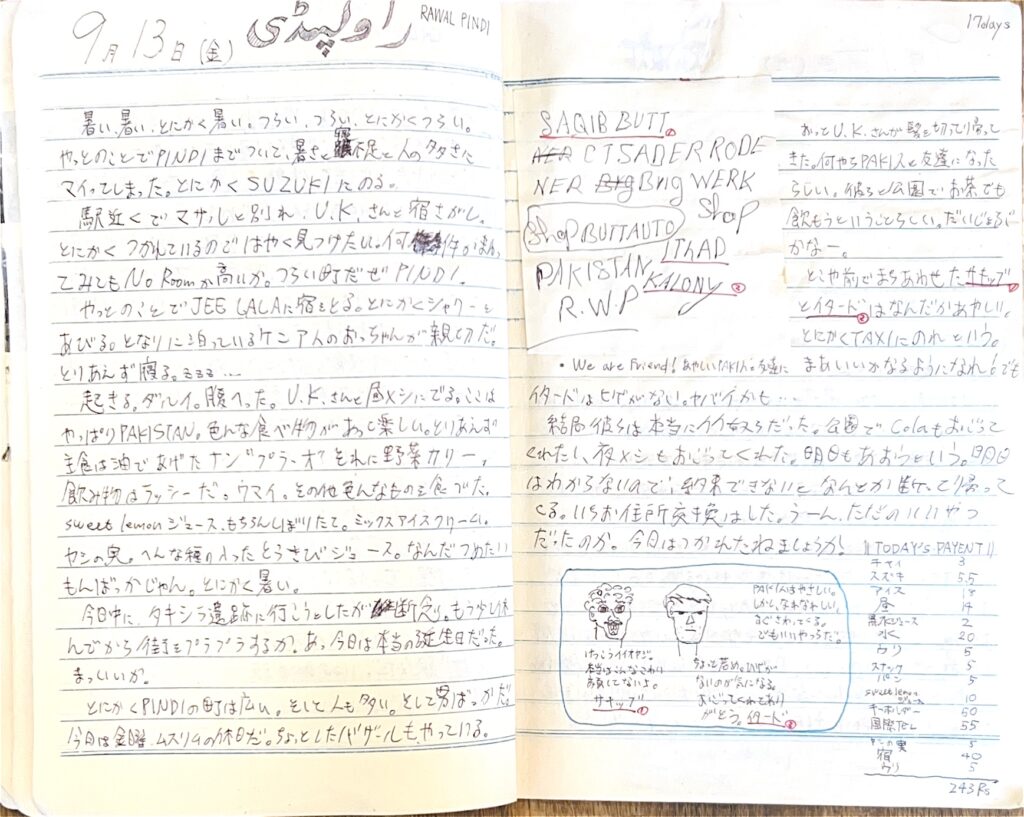 9月13日(金)
راولپنڈی
RAWAL PINDI
暑い、暑い、とにかく暑い。つらい、つらい、とにかくつらい。
やっとのことでPINDIまでついて、暑さと寝不足と人の多さに
マイってしまった。とにかくSUZUKIにのる。
駅近くでマサルと別れ、U.K.さんと宿さがし。
とにかくつかれているのではやく見つけたい。何件かまわっ
てみてもNo Roomか高いか。つらい町だぜPINDI。
やっとのことでJEE LALAに宿をとる。とにかくシャワーを
あびる。となりに泊っているケニア人のおっちゃんが親切だ。
とりあえず寝る。zzzz…
起きる。ダルイ。腹へった。U.K.さんと昼メシにでる。ここは
やっぱりPAKISTAN。色んな食べ物があって楽しい。とりあえず
主食は油であげたナン"プラーオ"それに野菜カリー。
飲み物はラッシーだ。ウマイ。その他色んなものを食べた。
sweet lemonジュース、もちろんしぼりたて。ミックスアイスクリーム。
ヤシの実。へんな種の入ったとうきびジュース。なんだつめたい
もんばっかじゃん。とにかく暑い。
今日中に、タキシラ遺跡に行こうとしたが断念。もう少し休
んでから街をブラブラするか。あっ今日は本当の誕生日だった。
まっいいか。
とにかくPINDIの町は広い。そして人も多い。そして男ばっかだ。
今日は金曜、ムスリムの休日だ。ちょっとしたバザールも、やっている。
17days
SAQIB BUTT ①
CTSADER RODE
NER Brig WERK
Shop
Shop BUTTAUTO
ITHAD
PAKISTAN KALONY ②
R.W.P
おっとU.K.さんが髪を切って帰って
きた。何やらPAKI人と友達になった
らしい。彼らと公園でお茶でも
飲もうということらしい。だいじょうぶ
かなー。
とこや前でまちあわせたサキッブ①
とイタード②はなんだかあやしい。
とにかくTAXIにのれという。
• We are Friend! あやしいPAKI人の友達に
まあいいかなるようになれ!でも
イタードはヒゲがない。ヤバイかも…
結局彼らは本当にイイ奴らだった。公園でColaもおごって
くれたし、夜メシもおごってくれた。明日もあおうという。明日
はわからないので、約束できないとなんとか断って帰って
くる。いちお住所交換はした。うーん、ただのいいやつ
だったのか。今日はつかれたねましょうか。
!! TODAY'S PAYENT !!
チャイ 3
スズキ 5.5
アイス 18
昼 14
黒水ジュース 2
水 20
ウリ 5
スナック 5
パン 5
sweet lemon ジュース 10
キーホルダー 50
国際Tel 55
ヤシの実 5
宿 40
ウリ 5
243Rs
PAKI人はやさしい。
しかしなれなれしい。
すぐさわってくる。
でもいいやつらだ。
けっこうイイオヤジ。
本当はこんなこわい
顔してないよ。
サキッブ①
ちょっと若め。ひげが
ないのが気になる。
おごってくれてあり
がとう。イタード②